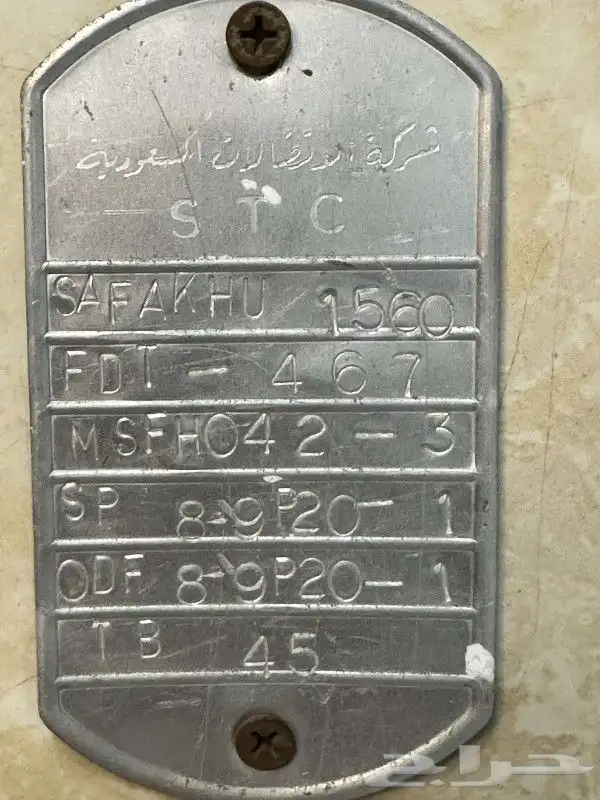 شركة الاتصالات السعودية
S T C
SAFAKHU 1560
FDT - 467
MSFH042-3
SP 8-9P20-1
ODF 8-9P20-1
TB 45
حراج